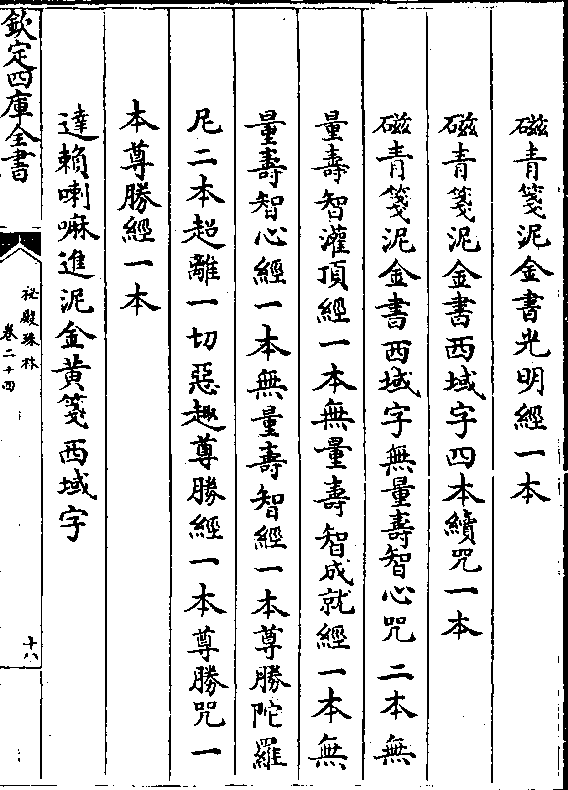 磁青箋泥金書光明經一本
磁青箋泥金書西域字四本續咒一本
磁青箋泥金書西域字無量壽智心咒二本無
量壽智灌頂經一本無量壽智成就經一本無
量壽智心經一本無量壽智經一本尊勝陀羅
尼二本超離一切惡趣尊勝經一本尊勝咒一
本尊勝經一本
達賴喇嘛進泥金黃箋西域字
欽定四庫全書
祕殿珠林
卷二十四
十八